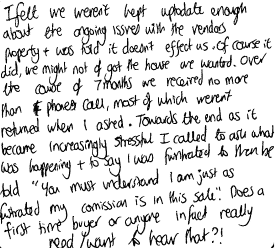 I felt we weren't kept uptodate enough
about the ongoing issues with the vendors
property + was told it doesnt effect us. Of course it
did, we might not of got the house we wanted. Over
the course of 7 months we received no more
than 4 phones call, most of which werent
returned when I asked. Towards the end as it
became increasingly stressful I called to ask what
was happening + to say I was frustrated to then be
told "You must understand I am just as
frustrated my comission is in this sale". Does a
first time buyer or anyone infact really
need/want to hear that?!